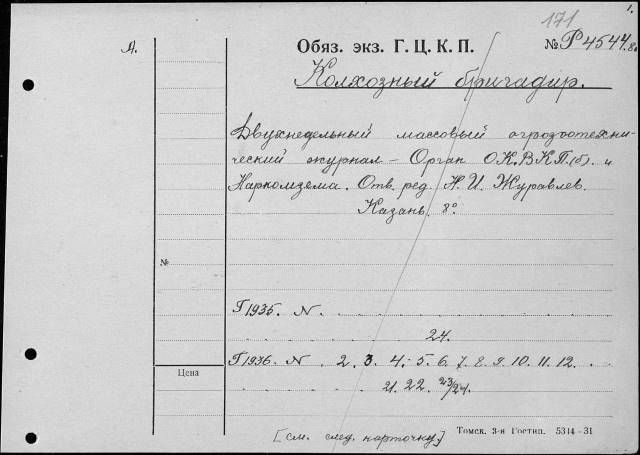 1.
171
А. Обяз. экз. Г. Ц. К. П. №Р4544.8º
Колхозный бригадир.
Двухнедельный массовый агрозоотехни-
ческий журнал – Орган ОК.ВКП(б). и
Наркомзема. Отв. ред. Н. И. Журавлев.
Казань. 8º.
№
Г1935. N.
24.
Г1936. N. 2. 3. 4. 5. 6. 7. 8. 9. 10. 11. 12.
Цена
21. 22. 23/24.
[см. след. карточку]
Томск. 3-я Гостип. 5314-31